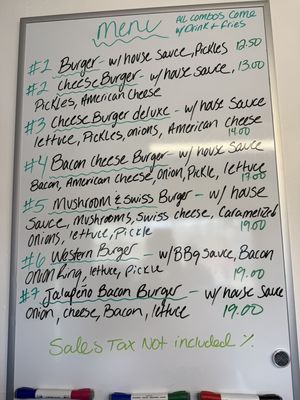 Menu
All combos come
w/ Drink + fries
#1 Burger - w/ house sauce, Pickles 12.50
#2 Cheese Burger - w/ house sauce, 13.00
Pickles, American Cheese
#3 Cheese Burger deluxe - w/ house Sauce
lettuce, Pickles, onions, American cheese
14.00
#4 Bacon Cheese Burger - w/ house Sauce
Bacon, American cheese, onion, Pickle, lettuce
17.00
#5 Mushroom & Swiss Burger - w/ house
Sauce, mushrooms, Swiss cheese, Caramelized
Onions, lettuce, Pickle 19.00
#6 Western Burger - w/ BBQ Sauce, Bacon
Onion Ring, lettuce, Pickle 19.00
#7 Jalapeño Bacon Burger - w/ house Sauce
Onion, cheese, Bacon, lettuce 19.00
Sales Tax Not included %